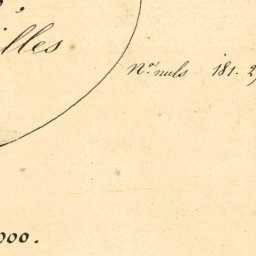 illes
Nos nuls 181. 2
000.